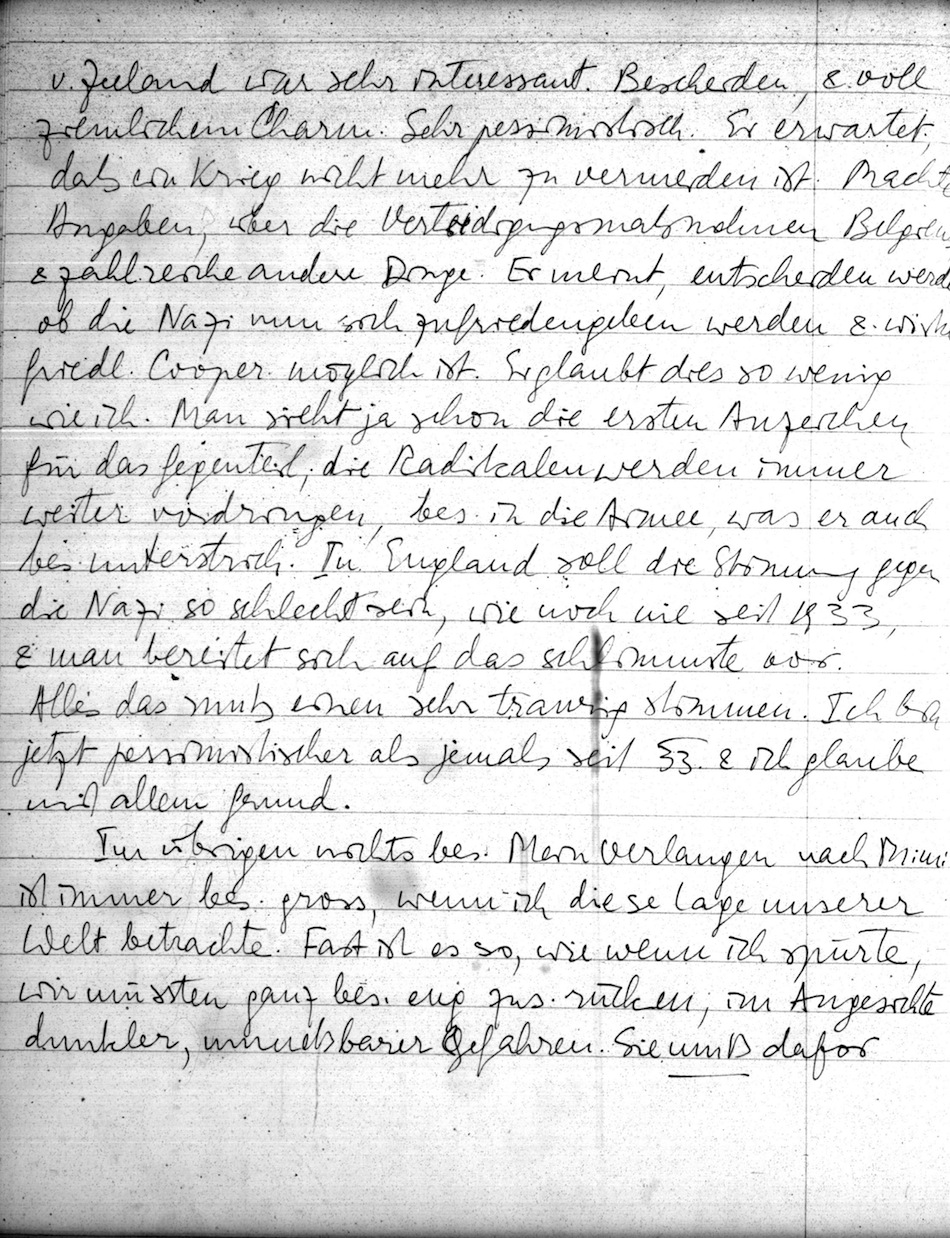 v. Zeeland war sehr interessant. Bescheiden, & voll
ziemlichem Charm. Sehr pessimistisch. Er erwartet,
dass ein Krieg nicht mehr zu vermeiden ist. Macht
Angaben, über die Verteidigungsmassnahmen Belgiens
& zahlreiche andere Dinge. Er meint, entscheiden werde
ob die Nazi nun sich zufriedengeben werden & wirkl
friedl. Cooper. möglich ist. Er glaubt dies so wenig
wie ich. Man sieht ja schon die ersten Anzeichen
für das Gegenteil, die Radikalen werden immer
weiter vordringen, bes. in die Armee, was er auch
bes. unterstrich. In England soll die Stimmung gegen
die Nazi so schlecht sein, wie noch nie seit 1933,
& man bereitet sich auf das schlimmste vor.
Alles das muss einen sehr traurig stimmen. Ich bin
jetzt pessimistischer als jemals seit 33. & ich glaube
mit allem Grund.
Im übrigen nichts bes. Mein Verlangen nach Mimi
ist immer bes. gross, wenn ich diese Lage unserer
Welt betrachte. Fast ist es so, wie wenn ich spürte,
wir müssten ganz bes. eng zus. rücken, im Angesichte
dunkler, Gefahren. Sie muß dafor